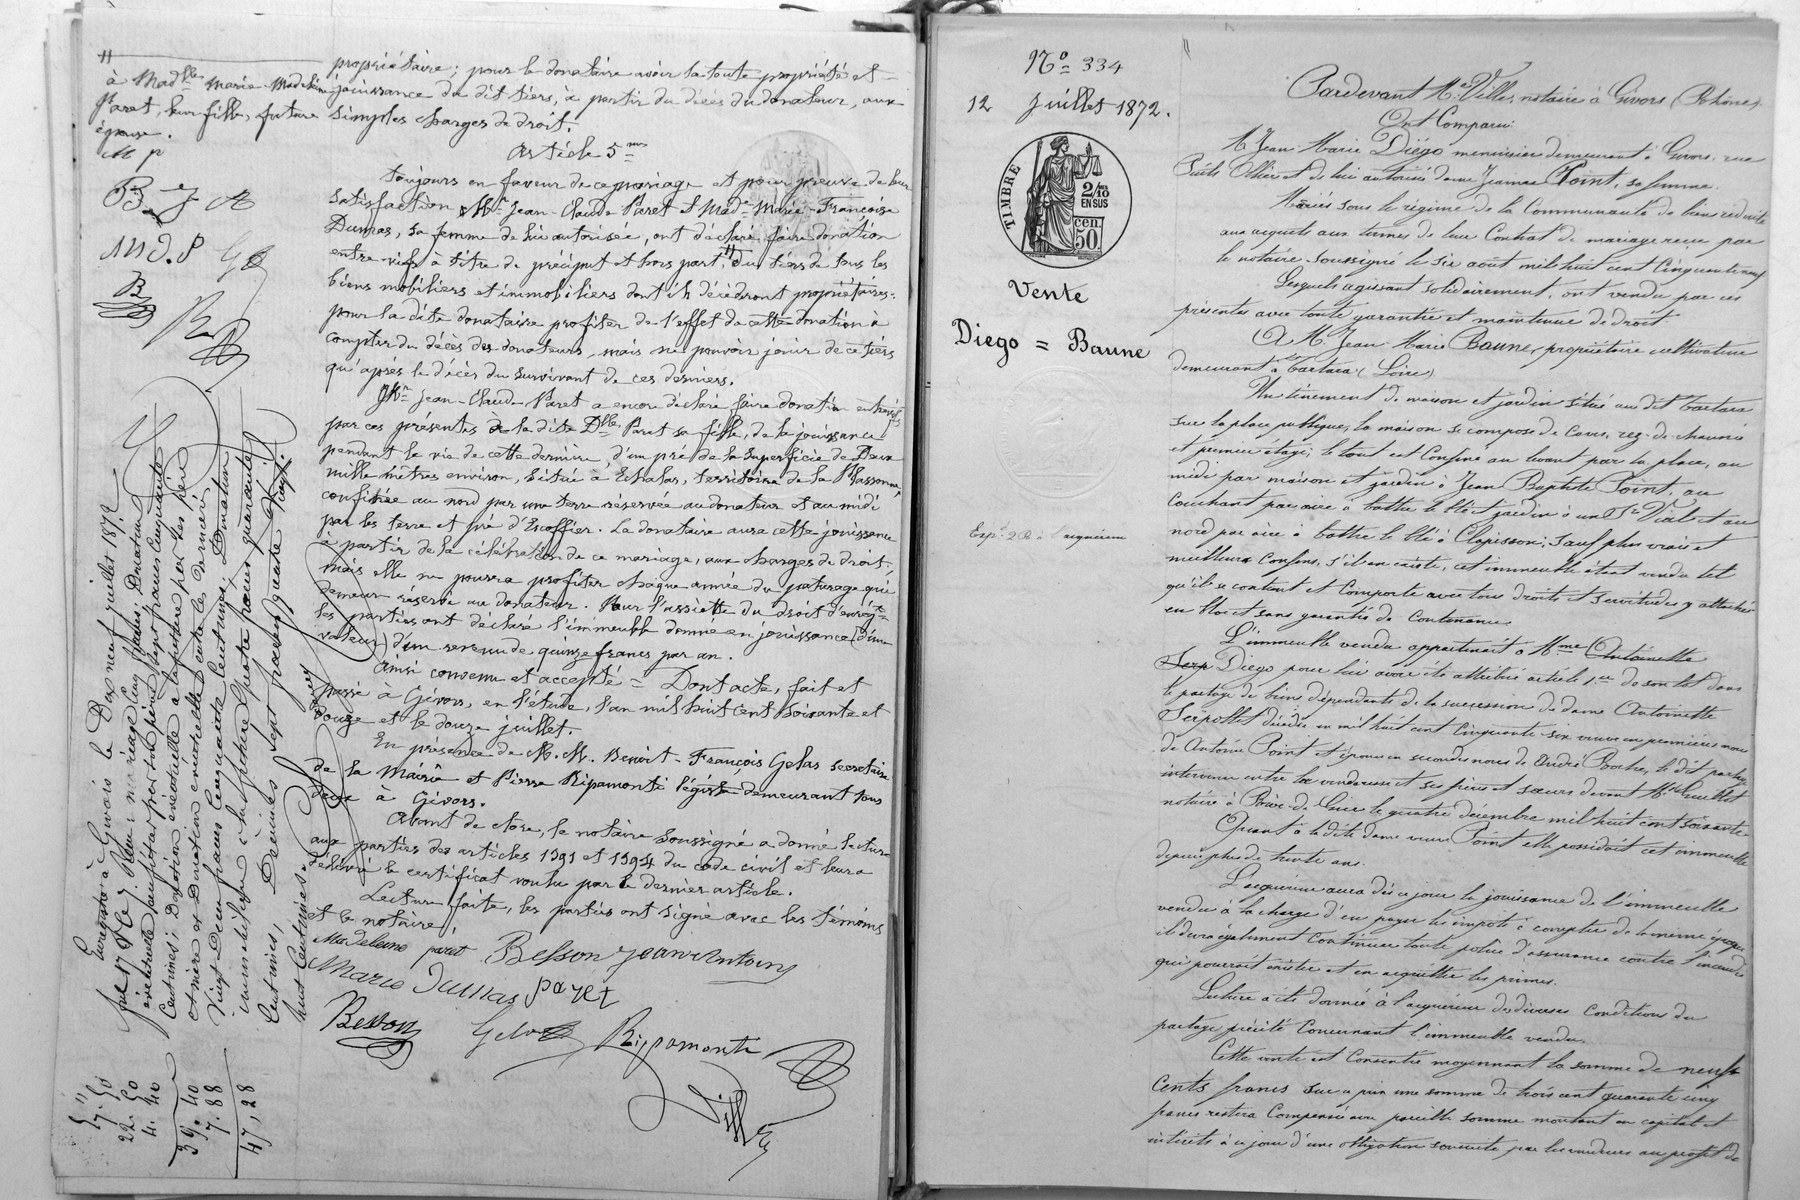 propriétaire; pour le donataire avoir la toute propriété et
jouissance du dit tiers, à partir du décès du donateur, aux
simples charges de droit.
"
à Madlle Marie Madeleine
Paret, leur fille, future
épouse.
M p
B J A
M D. P G
B
R
Article 5me
Toujours en faveur de ce mariage et pour preuve de leur
satisfaction Mr Jean-Claude Paret et Made Marie-Françoise
Dumas, sa femme de lui autorisée, ont déclaré faire donation
entre vifs à titre de préciput et hors part, " du tiers de tous les
biens mobiliers et immobiliers dont ils décèdront propriétaires:
pour la dite donataire profiter de l'effet de cette donation à
compter du décès des donateurs, mais ne pouvoir jouir de ce tiers
qu'après le décès du survivant de ces derniers.
Mr Jean-Claude Paret a encore déclaré faire donation entrevifs
par ces présentes à la dite Dlle Paret sa fille, de la jouissance
pendant la vie de cette dernière, d'un pré de la superficie de Deux
mille mètres environ, situé à Echalas, territoire de la
confinée au nord par une terre réservée au donateur et au midi
par les terre et pré d'Escoffier. La donataire aura cette jouissance
à partir de la célébration de ce mariage, aux charges de droit,
mais elle ne pourra profiter chaque année du paturage qui
demeure réservé au donateur. Pour l'assiette du droit d'enregt
les parties ont déclaré l'immeuble donné en jouissance
d'un revenu de quinze francs par an.
Ainsi convenu et accepté = Dont acte, fait et
passé à Givors, en l'étude, l'an mil huit cent soixante et
douze et le douze juillet.
En présence de M. M. Benoit-François Gelas secrétaire
de la Mairie et Pierre Ripamonti légiste demeurant tous
deux à Givors.
Avant de clore, le notaire soussigné a donné lecture
aux parties des articles 1391 et 1394 du code civil et leur a
délivré le certificat voulu par le dernier article.
Lecture faite, les parties ont signé avec les témoins
et le notaire
Madeleine paret Besson jean Antoin
Marie Dumas paret
Besson Gelas Ripamonti
Ville
Enregistré à Givors le Dix neuf juillet 1872
fol 57 Reçu: mariage Cinq francs; Donation
éventuelle au futur par son père sept francs Cinquante
Centimes; Donation éventuelle a la future par ses père
et mère et Donation éventuelle entre les
Vingt Deux francs Cinquante Centimes; Donation
immobilière à la future Quatre francs quarante
Centimes, Décimes sept francs quatre vingt
huit Centimes.
5 "
7. 50
22. 50
4. 40
39. 40
7. 88
47, 28
No 334
12 Juillet 1872.
TIMBRE
2/10
EN SUS
50 cen.
Vente
Diego = Baune
Expn 2 R à l'acquéreur
Pardevant Me Ville, notaire à Givors (Rhône).
Ont Comparu:
M Jean Marie Diégo menuisier demeurant à Givors, rue
Puits Ollier et de lui autorisée dame Jeanne Point, sa femme.
Mariés sous le régime de la Communauté de biens réduite
aux acquets aux termes de leur Contrat de mariage reçu par
le notaire soussigné le six août mil huit cent Cinquante neuf
Lesquels agissant solidairement, ont vendu par ces
présentes avec toute garantie et maintenue de droit
A M Jean Marie Baune, propriétaire cultivateur
demeurant à Tartara (Loire)
Un tènement de maison et jardin situé au dit Tartara
sur la place publique, la maison se compose de Cave, rez-de-chaussée
et premier étage; le tout est Confiné au levant par la place, au
midi par maison et jardin à Jean Baptiste Point, au
Couchant par aire à battre le blé et jardin à un Sr Vial et au
nord par aire à battre le blé à Clapisson; sauf plus vrais et
meilleurs Confins, s'il en existe, cet immeuble étant vendu tel
qu'il se contient et Comporte avec tous droits et servitudes y attachés
en bloc et sans garantie de Contenance
L'immeuble vendu appartient à Mme Antoinette
Serp Diego pour lui avoir été attribué article 1er de son lot dans
le partage de biens dépendants de la succession de dame Antoinette
Serpollet décédée en mil huit cent Cinquante-six veuve en premières noces
de Antoine Point et épouse en secondes noces de André Boche, le dit partage
intervenu entre la venderesse et ses frères et sœurs devant Me Guillot
notaire à Rive-de-Gier le quatre décembre mil huit cent soixante
Quant à la dite dame veuve Point elle possédait cet immeuble
depuis plus de trente ans.
L'acquéreur aura dès ce jour la jouissance de l'immeuble
vendu à la charge d'en payer les impots à compter de la même époque
il devra également Continuer toute police d'assurance contre l'incendie
qui pourrait exister et en acquitter les primes.
Lecture a été donnée à l'acquéreur des diverses Conditions du
partage précité Concernant l'immeuble vendu.
Cette vente est Consentie moyennant la somme de neuf
Cents francs sur ce prix une somme de trois cent quarante cinq
francs restera Compensée avec pareille somme montant en capital et
intérêts à ce jour d'une obligation souscrite par les vendeurs au profit de